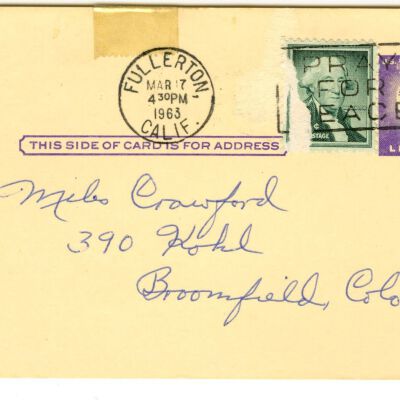 FULLERTON,
MAR 17
4 30 PM
1963
CALIF.
PRAY
FOR
PEACE
THIS SIDE OF CARD IS FOR ADDRESS
Miles Crawford
390 Kohl
Broomfield, Colo